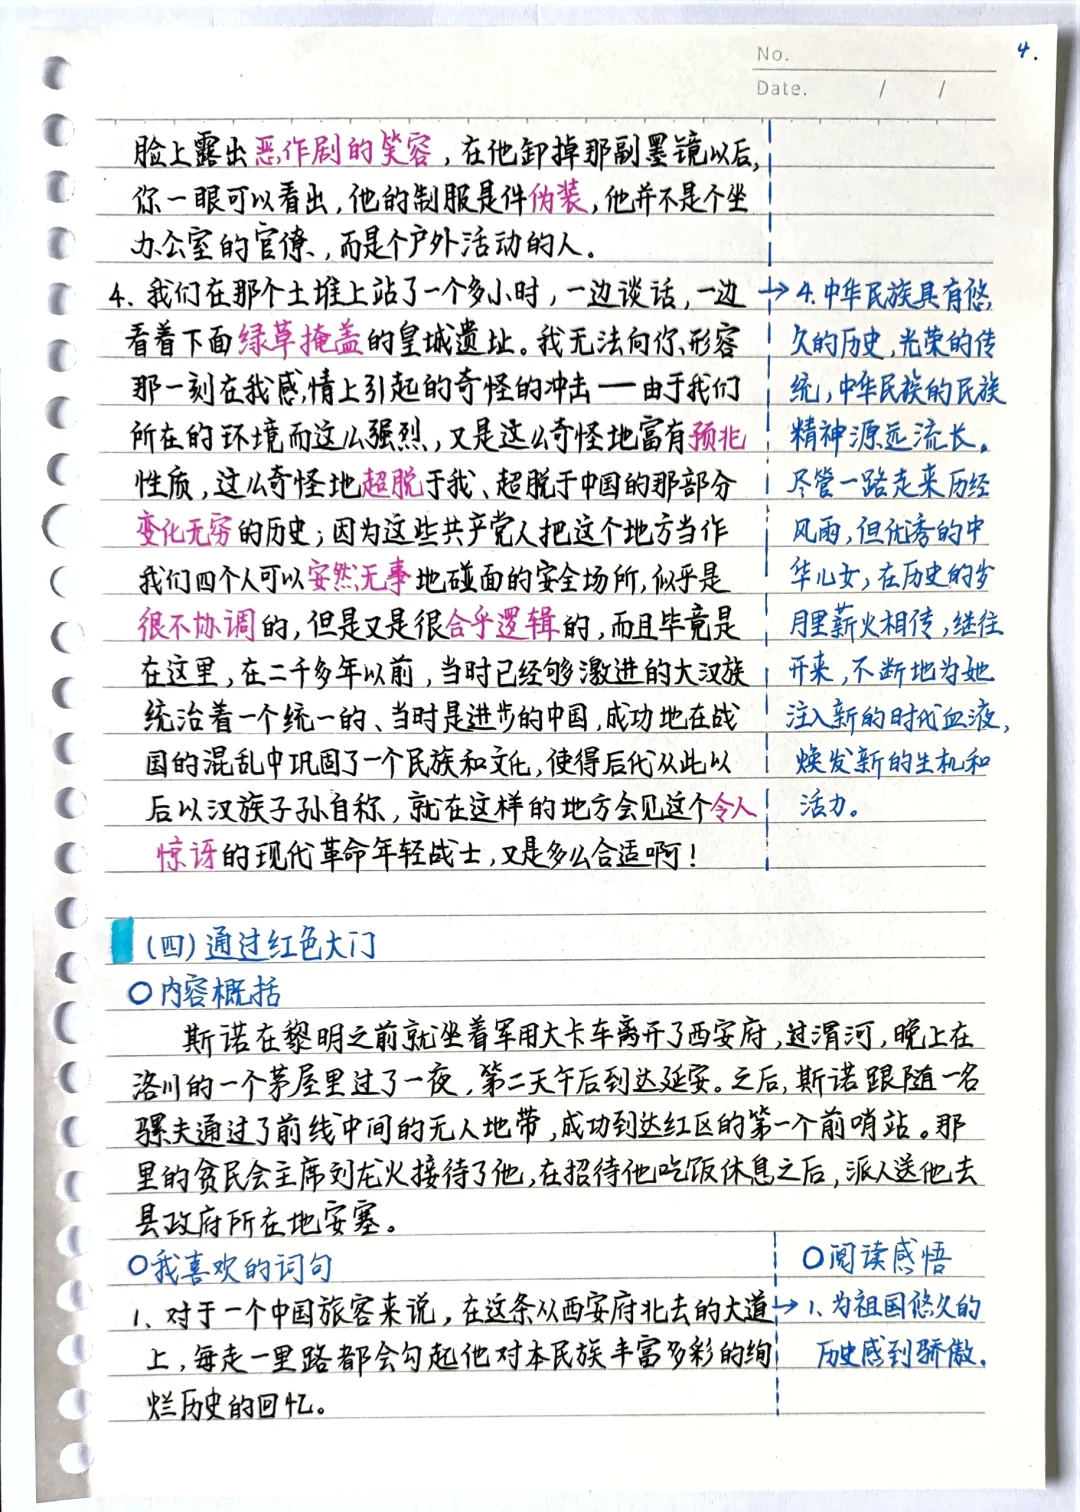 4.
No.
Date.    /    /
脸上露出恶作剧的笑容，在他卸掉那副墨镜以后，
你一眼可以看出，他的制服是件伪装，他并不是个坐
办公室的官僚，而是个户外活动的人。
4、我们在那个土堆上站了一个多小时，一边谈话，一边
看着下面绿草掩盖的皇城遗址。我无法向你形容
那一刻在我感情上引起的奇怪的冲击——由于我们
所在的环境而这么强烈，又是这么奇怪地富有预兆
性质，这么奇怪地超脱于我、超脱于中国的那部分
变化无穷的历史；因为这些共产党人把这个地方当作
我们四个人可以安然无事地碰面的安全场所，似乎是
很不协调的，但是又是很合乎逻辑的，而且毕竟是
在这里，在二千多年以前，当时已经够激进的大汉族
统治着一个统一的、当时是进步的中国，成功地在战
国的混乱中巩固了一个民族和文化，使得后代从此以
后以汉族子孙自称，就在这样的地方会见这个令人
惊讶的现代革命年轻战士，又是多么合适啊！
→4.中华民族具有悠
久的历史，光荣的传
统，中华民族的民族
精神源远流长。
尽管一路走来历经
风雨，但优秀的中
华儿女，在历史的岁
月里薪火相传，继往
开来，不断地为她
注入新的时代血液，
焕发新的生机和
活力。
（四）通过红色大门
○内容概括
斯诺在黎明之前就坐着军用大卡车离开了西安府，过渭河，晚上在
洛川的一个茅屋里过了一夜，第二天午后到达延安。之后，斯诺跟随一名
骡夫通过了前线中间的无人地带，成功到达红区的第一个前哨站。那
里的贫民会主席刘龙火接待了他，在招待他吃饭休息之后，派人送他去
县政府所在地安塞。
○我喜欢的词句
1、对于一个中国旅客来说，在这条从西安府北去的大道
上，每走一里路都会勾起他对本民族丰富多彩的绚
烂历史的回忆。
○阅读感悟
→1、为祖国悠久的
历史感到骄傲。